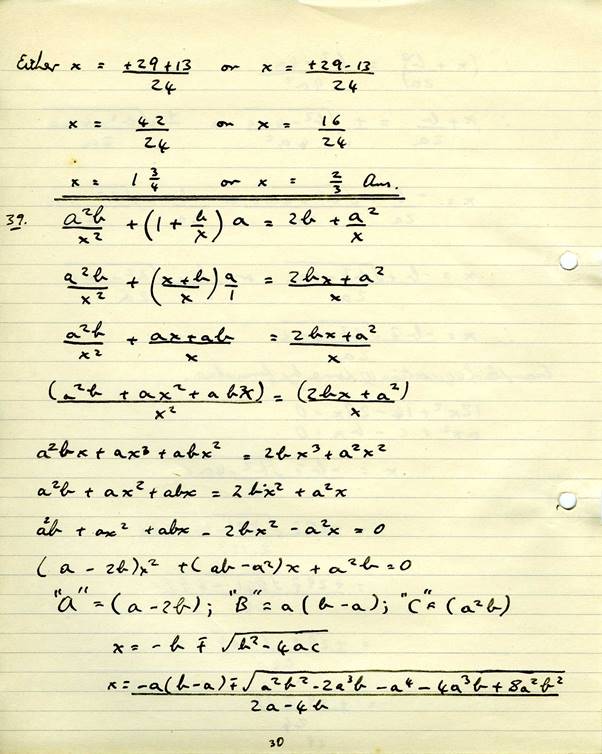 Either x = +29+13/24 or x = +29-13/24
x = 42/24 or x = 16/24
x = 1 3/4 or x = 2/3 Ans.
39. a²b/x² + (1 + b/x) a = 2b + a²/x
a²b/x² + (x+b/x) a/1 = 2bx + a²/x
a²b/x² + ax+ab/x = 2bx+a²/x
(a²b + ax² + abx)/x² = (2bx + a²)/x
a²bx + ax³ + abx² = 2bx³ + a²x²
a²b + ax² + abx = 2bx² + a²x
a²b + ax² + abx - 2bx² - a²x = 0
(a - 2b)x² + (ab - a²)x + a²b = 0
"A" = (a - 2b); "B" = a(b - a); "C" = (a²b)
x = -b ∓ √b² - 4ac
x = -a(b-a) ∓ √a²b² - 2a³b - a⁴ - 4a³b + 8a²b²/2a - 4b
30